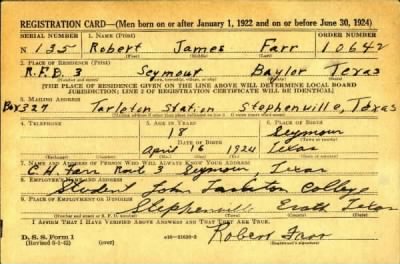 REGISTRATION CARD—(Men born on or after January 1, 1922 and on or before June 30, 1924)
SERIAL NUMBER 1. NAME (Print) ORDER NUMBER
N 135 Robert James Farr 10642
(First) (Middle) (Last)
2. PLACE OF RESIDENCE (Print)
R.F.D. 3 Seymour Baylor Texas
(Number and street) (Town, township, village, or city) (County) (State)
[THE PLACE OF RESIDENCE GIVEN ON THE LINE ABOVE WILL DETERMINE LOCAL BOARD
JURISDICTION; LINE 2 OF REGISTRATION CERTIFICATE WILL BE IDENTICAL]
3. MAILING ADDRESS
Box 327 Tarleton Station Stephenville, Texas
4. TELEPHONE 5. AGE IN YEARS 6. PLACE OF BIRTH
18 Seymour
DATE OF BIRTH
April 16 1924 Texas
7. NAME AND ADDRESS OF PERSON WHO WILL ALWAYS KNOW YOUR ADDRESS
C.H. Farr Rout 3 Seymour, Texas
8. EMPLOYER'S NAME AND ADDRESS
Student John Tarleton College
9. PLACE OF EMPLOYMENT OR BUSINESS
Stephenville Erath Texas
(Number and street or R. F. D. number) (Town) (County) (State)
I AFFIRM THAT I HAVE VERIFIED ABOVE ANSWERS AND THAT THEY ARE TRUE.
D. S. S. Form 1
(Revised 6-1-42) (over) Robert Farr